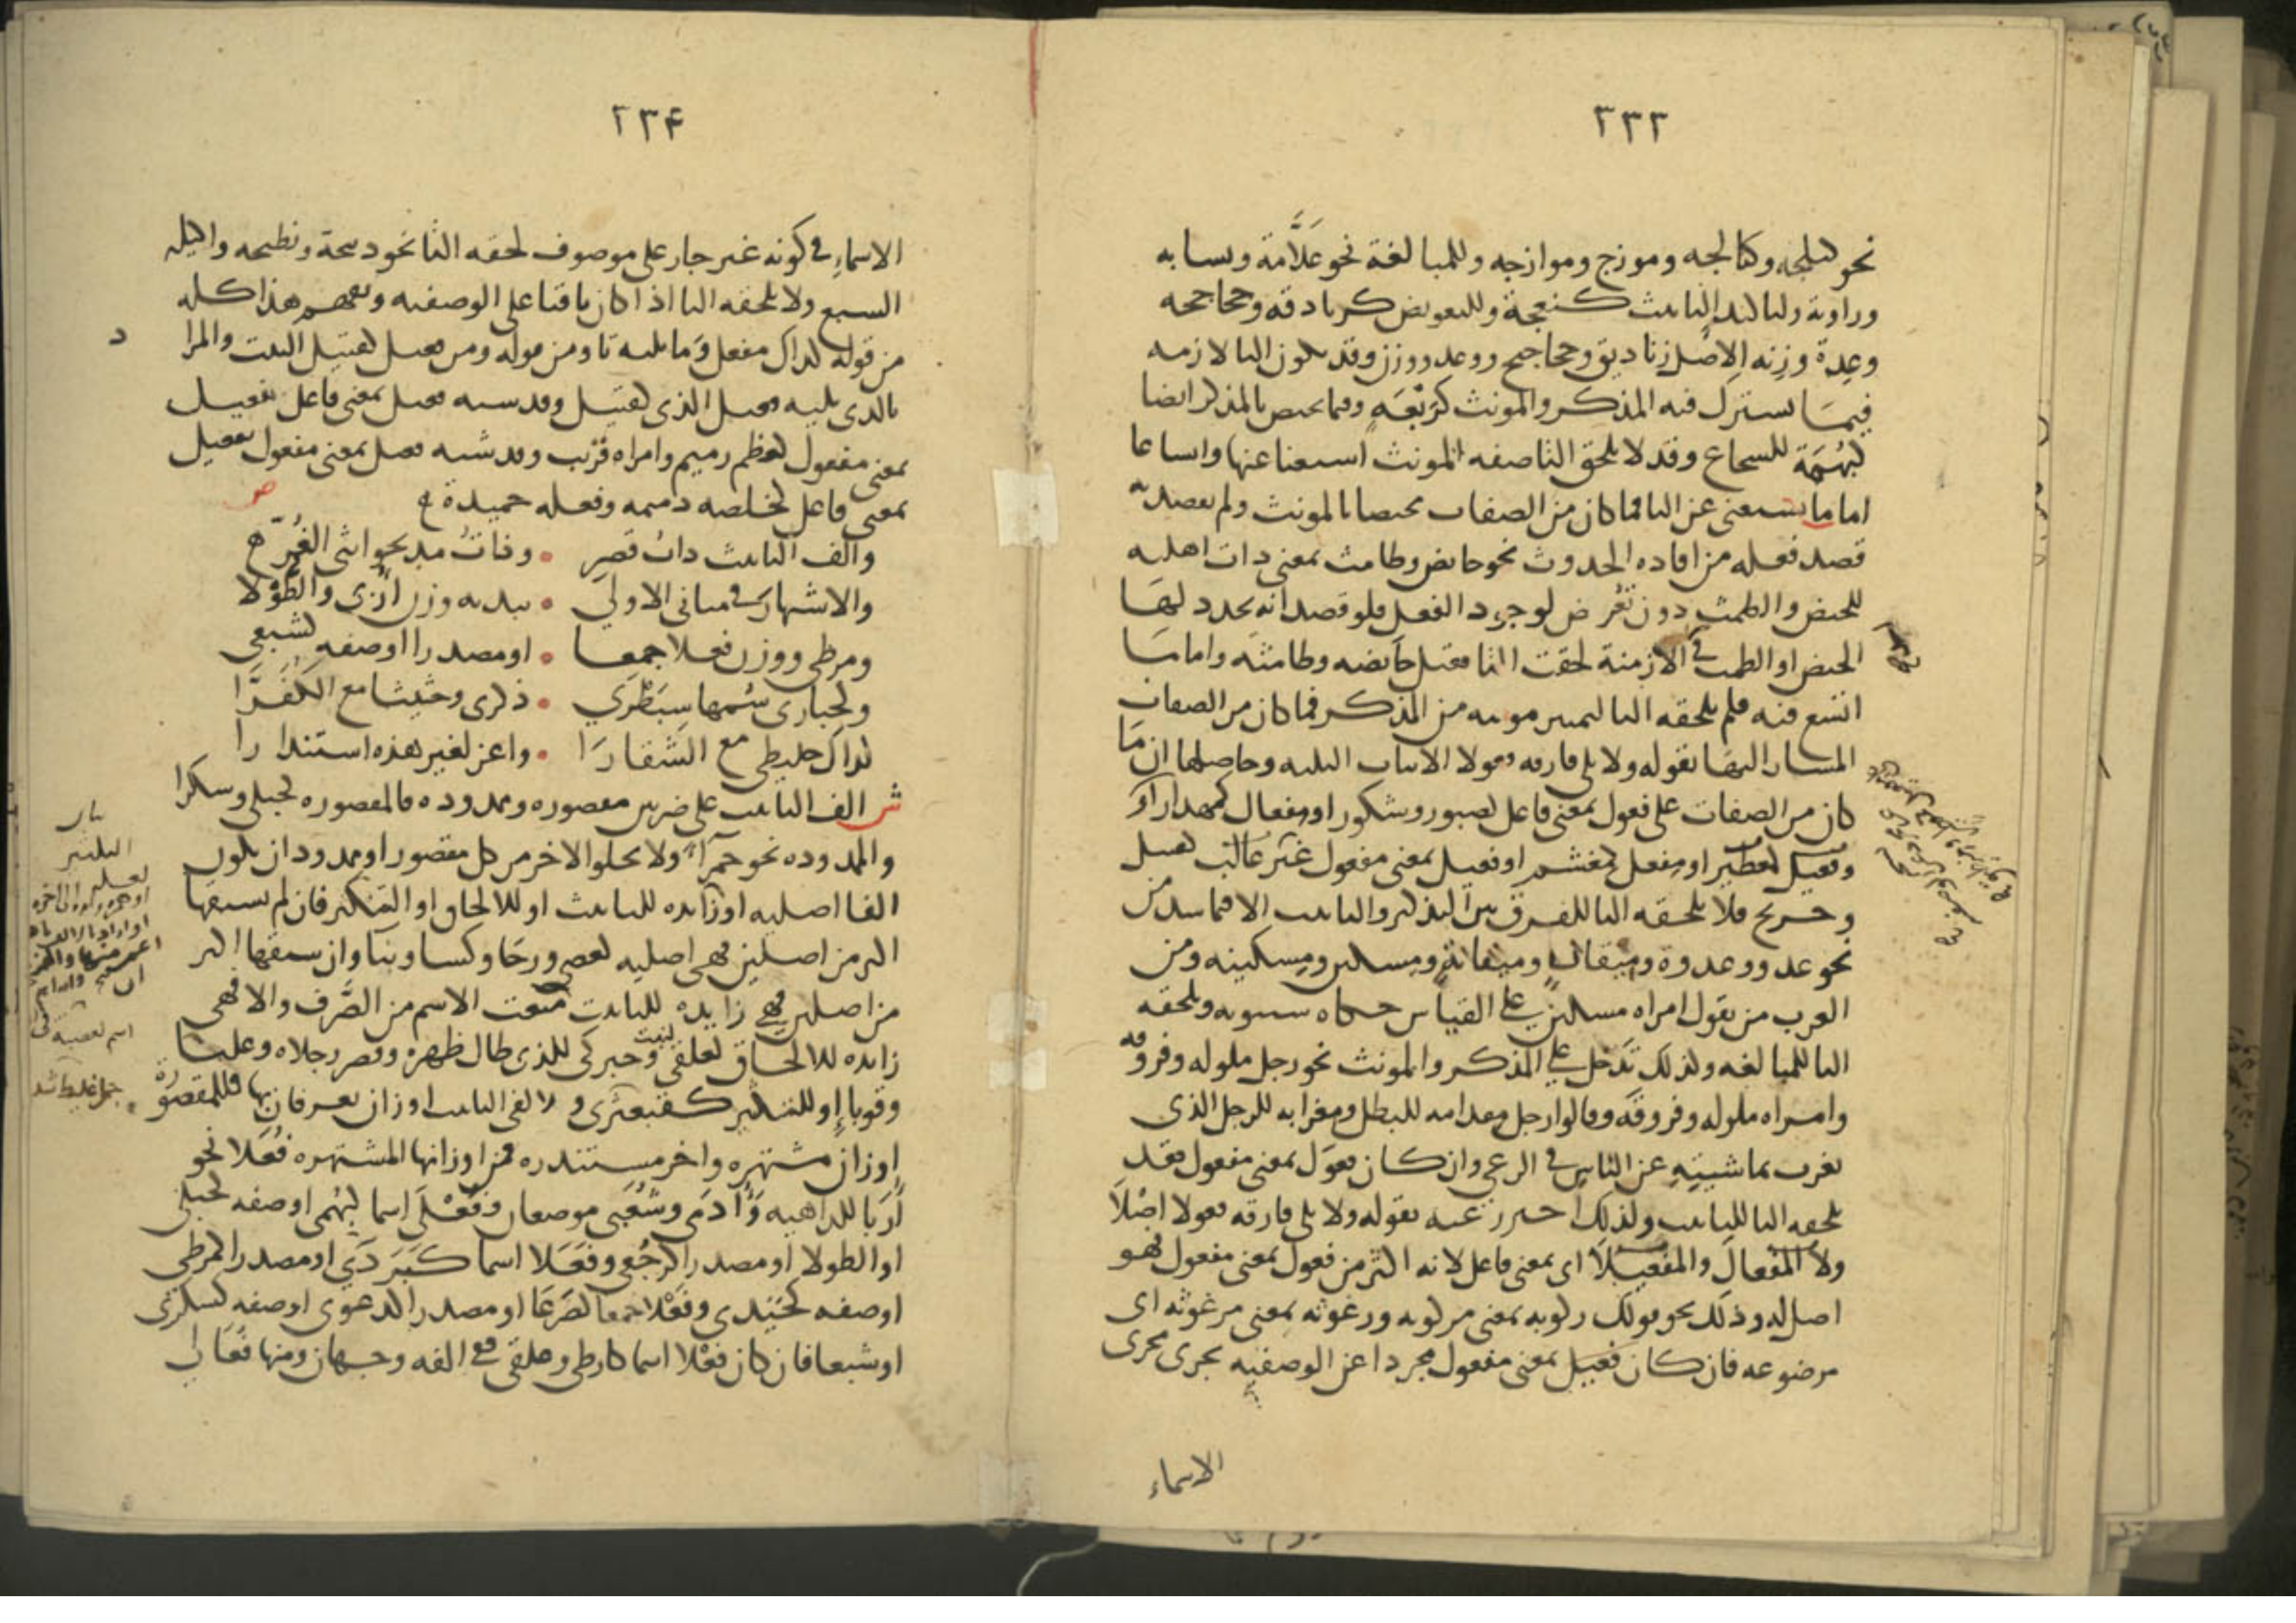 ٢٣٣
نحو كيلجه وكيالجه وموزج وموازجه وللمبالغة نحو علَّامة ونسابه
وراوية ولتاكيد التانيث كنعجة وللتعويض كزنادقه وجحاجحه
وعِدة وزِنه الاصل زناديق وجحاجيح ووعد ووزن وقد تكون التا لازمه
فيمَا يشترك فيه المذكر والمونث كرَبْعَةٍ وفيما يختص بالمذكر ايضا
كبُهْمَة للشجاع وقد لا تلحق التا صفه المونث استغنا عنها واتساعا
اما ما يستغنى عن التا فما كان من الصفات مختصا بالمونث ولم يقصد به
قصد فعله من افاده الحدوث نحو حايض وطامث بمعنى ذات اهليه
للحيض والطمث دون تعرض لوجود الفعل فلو قصد انه تجدد لهَا
الحيض او الطمث في الازمنة لحقت التا فقيل حايضه وطامثه واما ما
اتسع فيه فلم تلحقه التا لتمييز مونثه من المذكر فما كان من الصفات
المشار اليهَا بقوله ولا تلي فارقه فعولا الابيات الثلثه وحاصلها ان مَا
كان من الصفات على فعول بمعنى فاعل كصبور وشكور او مفعال كمهذار او
ومفعيل كمعطير او مفعل كمغشم او فعيل بمعنى مفعول غير غالب كقتيل
وجريح فلا تلحقه التا للفرق بين التذكير والتانيث الا فيما شذ من
نحو عدو وعدوة وميقان وميقانة ومسكين ومسكينه ومن
العرب من يقول امراه مسكين على القياس حكاه سيبويه وتلحقه
التا للمبالغه ولذلك تدخل على المذكر والمونث نحو رجل ملوله وفروقه
وامراه ملوله وفروقه وقالوا رجل مقدامه للبطل ومعزابه للرجل الذى
يعزب بماشيتِهِ عن الناس في الرعي وان كان فعول بمعنى مفعول فقد
تلحقه التا للتانيث ولذلك احترز عنه بقوله ولا تلي فارقه فعولا اصْلاَ
ولا المفعال والمفعيلاَ اى بمعنى فاعل لانه اكثر من فعول بمعنى مفعول فهو
اصل له وذلك نحو قولك ركوبه بمعنى مركوبه ورغوثه بمعنى مرغوثه اى
مرضوعه فان كان فعيل بمعنى مفعول مجردا عن الوصفيه يجرى مجرى
الاسماء
٢٣٤
الاسماءِ في كونه غير جار على موصوف لحقه التا نحو ذبيحة ونطيحه واكيله
السبع ولا تلحقه التا اذا كان باقيا على الوصفيه ويفهم هذا كله
من قوله كذاك مفعل وَما تليه تا ومن قوله ومن فعيل كقتيل البيت والمرا
بالذى يليه فعيل الذى كقتيل وقد يشبه فعيل بمعنى فاعل بفعيل
بمعنى مفعول كعظم رميم وامراه قريب وقد شبه فعيل بمعنى مفعول بفعيل
بمعنى فاعل كخصله ذميمه وفعله حميدة
ص
والف التانيث ذاتُ قصرِ • وذاتُ مد نحو انثى الغُرّ
والاشتهار في مباني الاولي • يبديه وزن اُرَبى والطُّوْلا
ومرطى ووزن فعلا جمعا • او مصدرا او صفه كشبعى
وكحبارى سُمَّهى سِبَطْرَي • ذكرى وحثيثا مع الكُفُرَّا
كذاك خليطى مع الشُّقارَا • واعز لغير هذه استندارا
ش الف التانيث على ضربين مقصوره وممدوده فالمقصوره كحبلى وسكرا
والممدوده نحو حمرآء ولا يخلو الاخر من كل مقصور او ممدود ان يكون
الفا اصليه او زايده للتانيث او للالحاق او التكثير فان لم يسبقها
اكثر من اصلين فهى اصليه كعصى ورحَا وكسا وبنا وان سبقها اكثر
من اصلين فهي زايده للتانيث منعت الاسم من الصَّرف والا فهى
زايده للالحاق كعلقى لنبت وحبركى للذى طال ظهره وقصر رجلاه وعلبا
وقوبا او للتكثير كقبعثرى ولالفى التانيث اوزان يعرفان بها فللمقصورة
اوزان مشتهره واخر مستندره فمن اوزانها المشتهره فُعَلا نحو
اُرَبا للداهيه وَأُدَمَى وشُعَبَى موضعان وفُعْلَى اسما كبُهْمى او صفه كحبلى
او الطولا او مصدرا كرُجْعى وفَعَلا اسما كبَرَدَي او مصدرا كمرطى
او صفه كحَيَدى وفَعْلا جمعا كصَرْعَا او مصدرا كدعوى او صفه كسكرى
او شبعا فان كان فعْلا اسما كارطى وعلقى ففي الفه وجهان ومنها فُعَالى